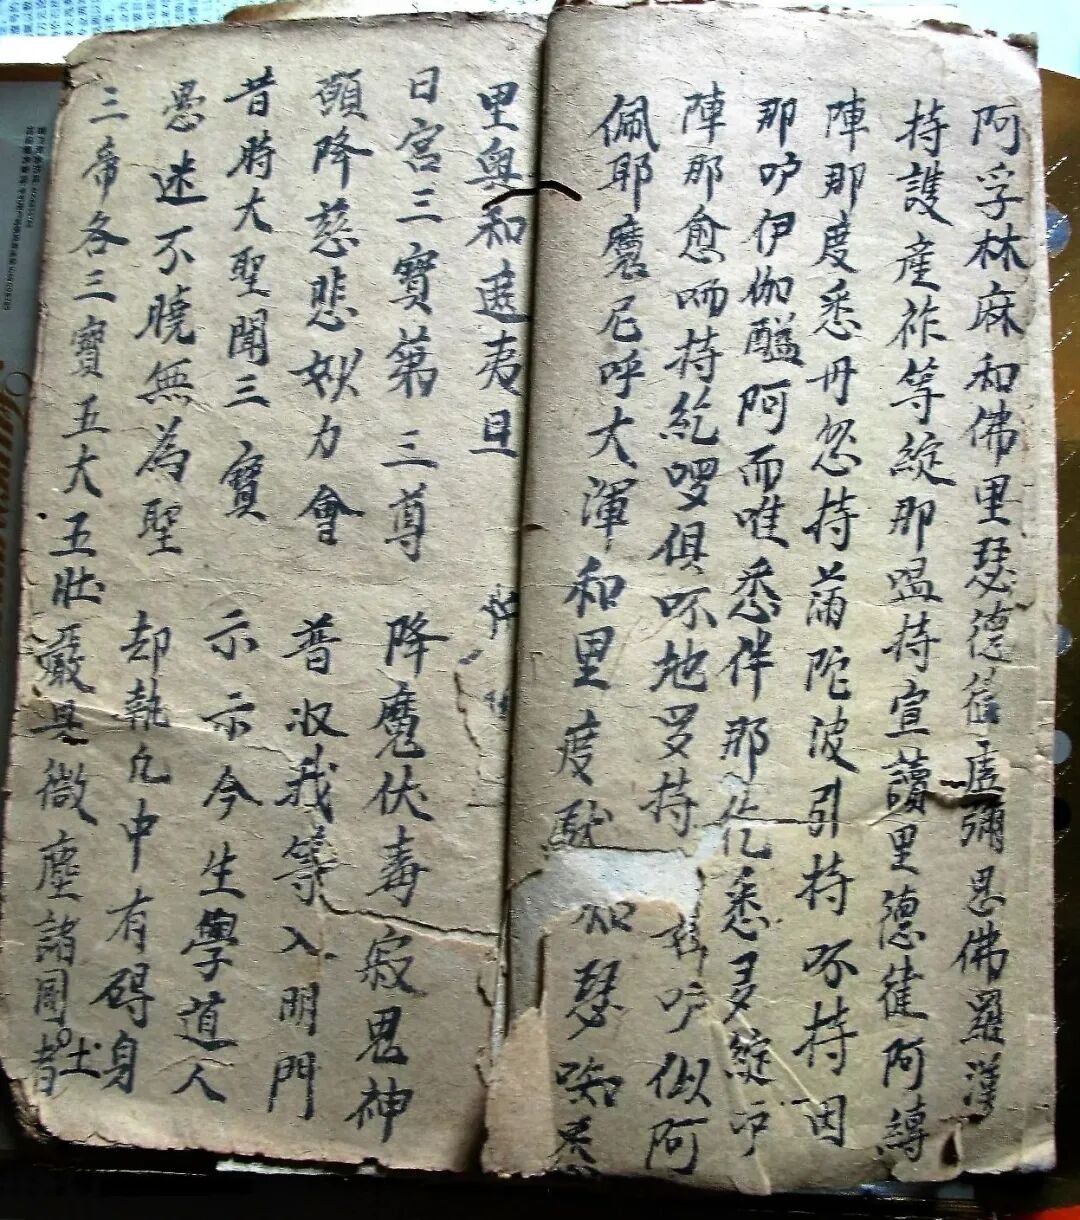 阿孚林麻和佛里瑟德健盧彌思佛羅漢
持護產祚等綻那嗢持宣讀里德健阿縛
陣那度悉冊忽持蒲陀波引持啄持因
那吵伊伽醯阿而唯悉伴那佗悉多綻吵
陣那愈哂持紇啰俱吥地多持吵似阿
佩耶魔尼呼大渾和里度馱和瑟喍悉
里奥和遮夷旦
日宮三寶第三尊 降魔伏毒寂鬼神
願降慈悲妙力會 普收我等入明門
昔時大聖聞三寶 示示今生學道人
愚迷不曉無為聖 却執凢中有碍身
三帝各三寶五大五壯嚴具微塵諸国土者